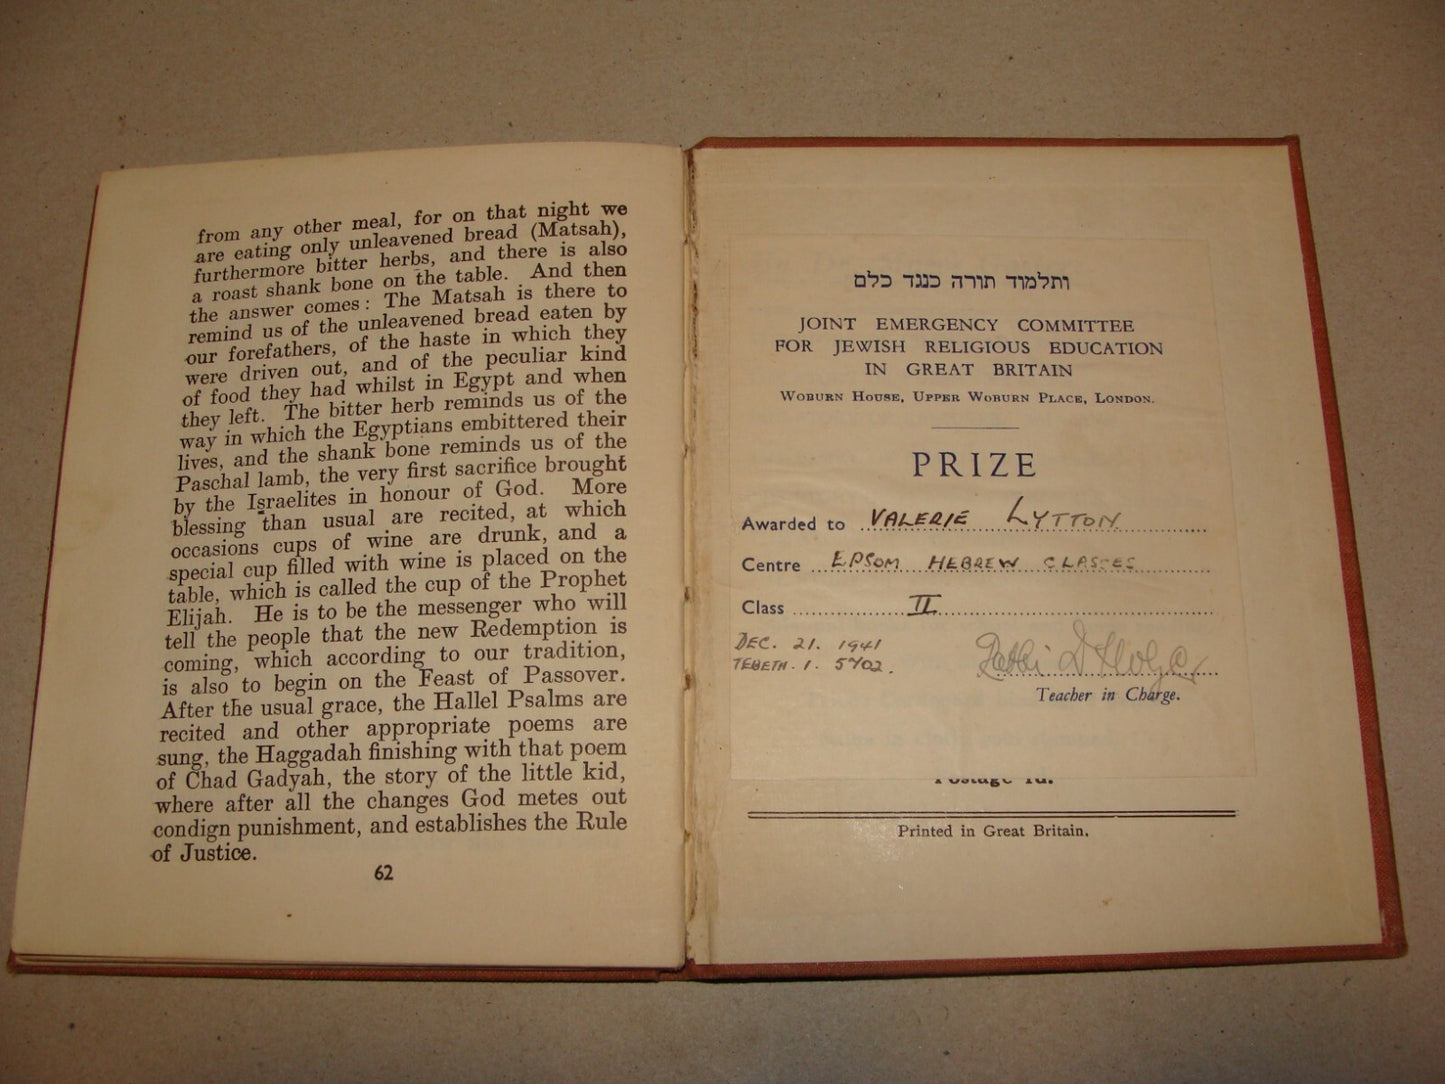 from any other meal, for on that night we
are eating only unleavened bread (Matsah),
furthermore bitter herbs, and there is also
a roast shank bone on the table. And then
the answer comes: The Matsah is there to
remind us of the unleavened bread eaten by
our forefathers, of the haste in which they
were driven out, and of the peculiar kind
of food they had whilst in Egypt and when
they left. The bitter herb reminds us of the
way in which the Egyptians embittered their
lives, and the shank bone reminds us of the
Paschal lamb, the very first sacrifice brought
by the Israelites in honour of God. More
blessing than usual are recited, at which
occasions cups of wine are drunk, and a
special cup filled with wine is placed on the
table, which is called the cup of the Prophet
Elijah. He is to be the messenger who will
tell the people that the new Redemption is
coming, which according to our tradition,
is also to begin on the Feast of Passover.
After the usual grace, the Hallel Psalms are
recited and other appropriate poems are
sung, the Haggadah finishing with that poem
of Chad Gadyah, the story of the little kid,
where after all the changes God metes out
condign punishment, and establishes the Rule
of Justice.
62
ותלמוד תורה כנגד כלם
JOINT EMERGENCY COMMITTEE
FOR JEWISH RELIGIOUS EDUCATION
IN GREAT BRITAIN
WOBURN HOUSE, UPPER WOBURN PLACE, LONDON.
PRIZE
Awarded to VALERIE LYTTON
Centre EPSOM HEBREW CLASSES
Class II
DEC. 21. 1941
TEBETH. 1. 5702.
Rabbi D
Teacher in Charge.
Postage 1d.
Printed in Great Britain.